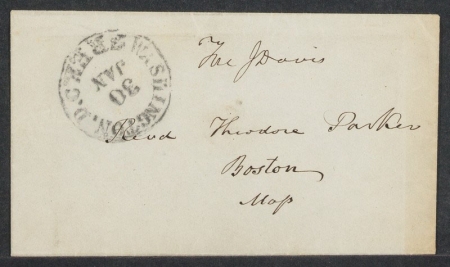 WASHINGTON. D.C.
JAN
30
J Davis
Revd Theodore Parker
Boston
Mass